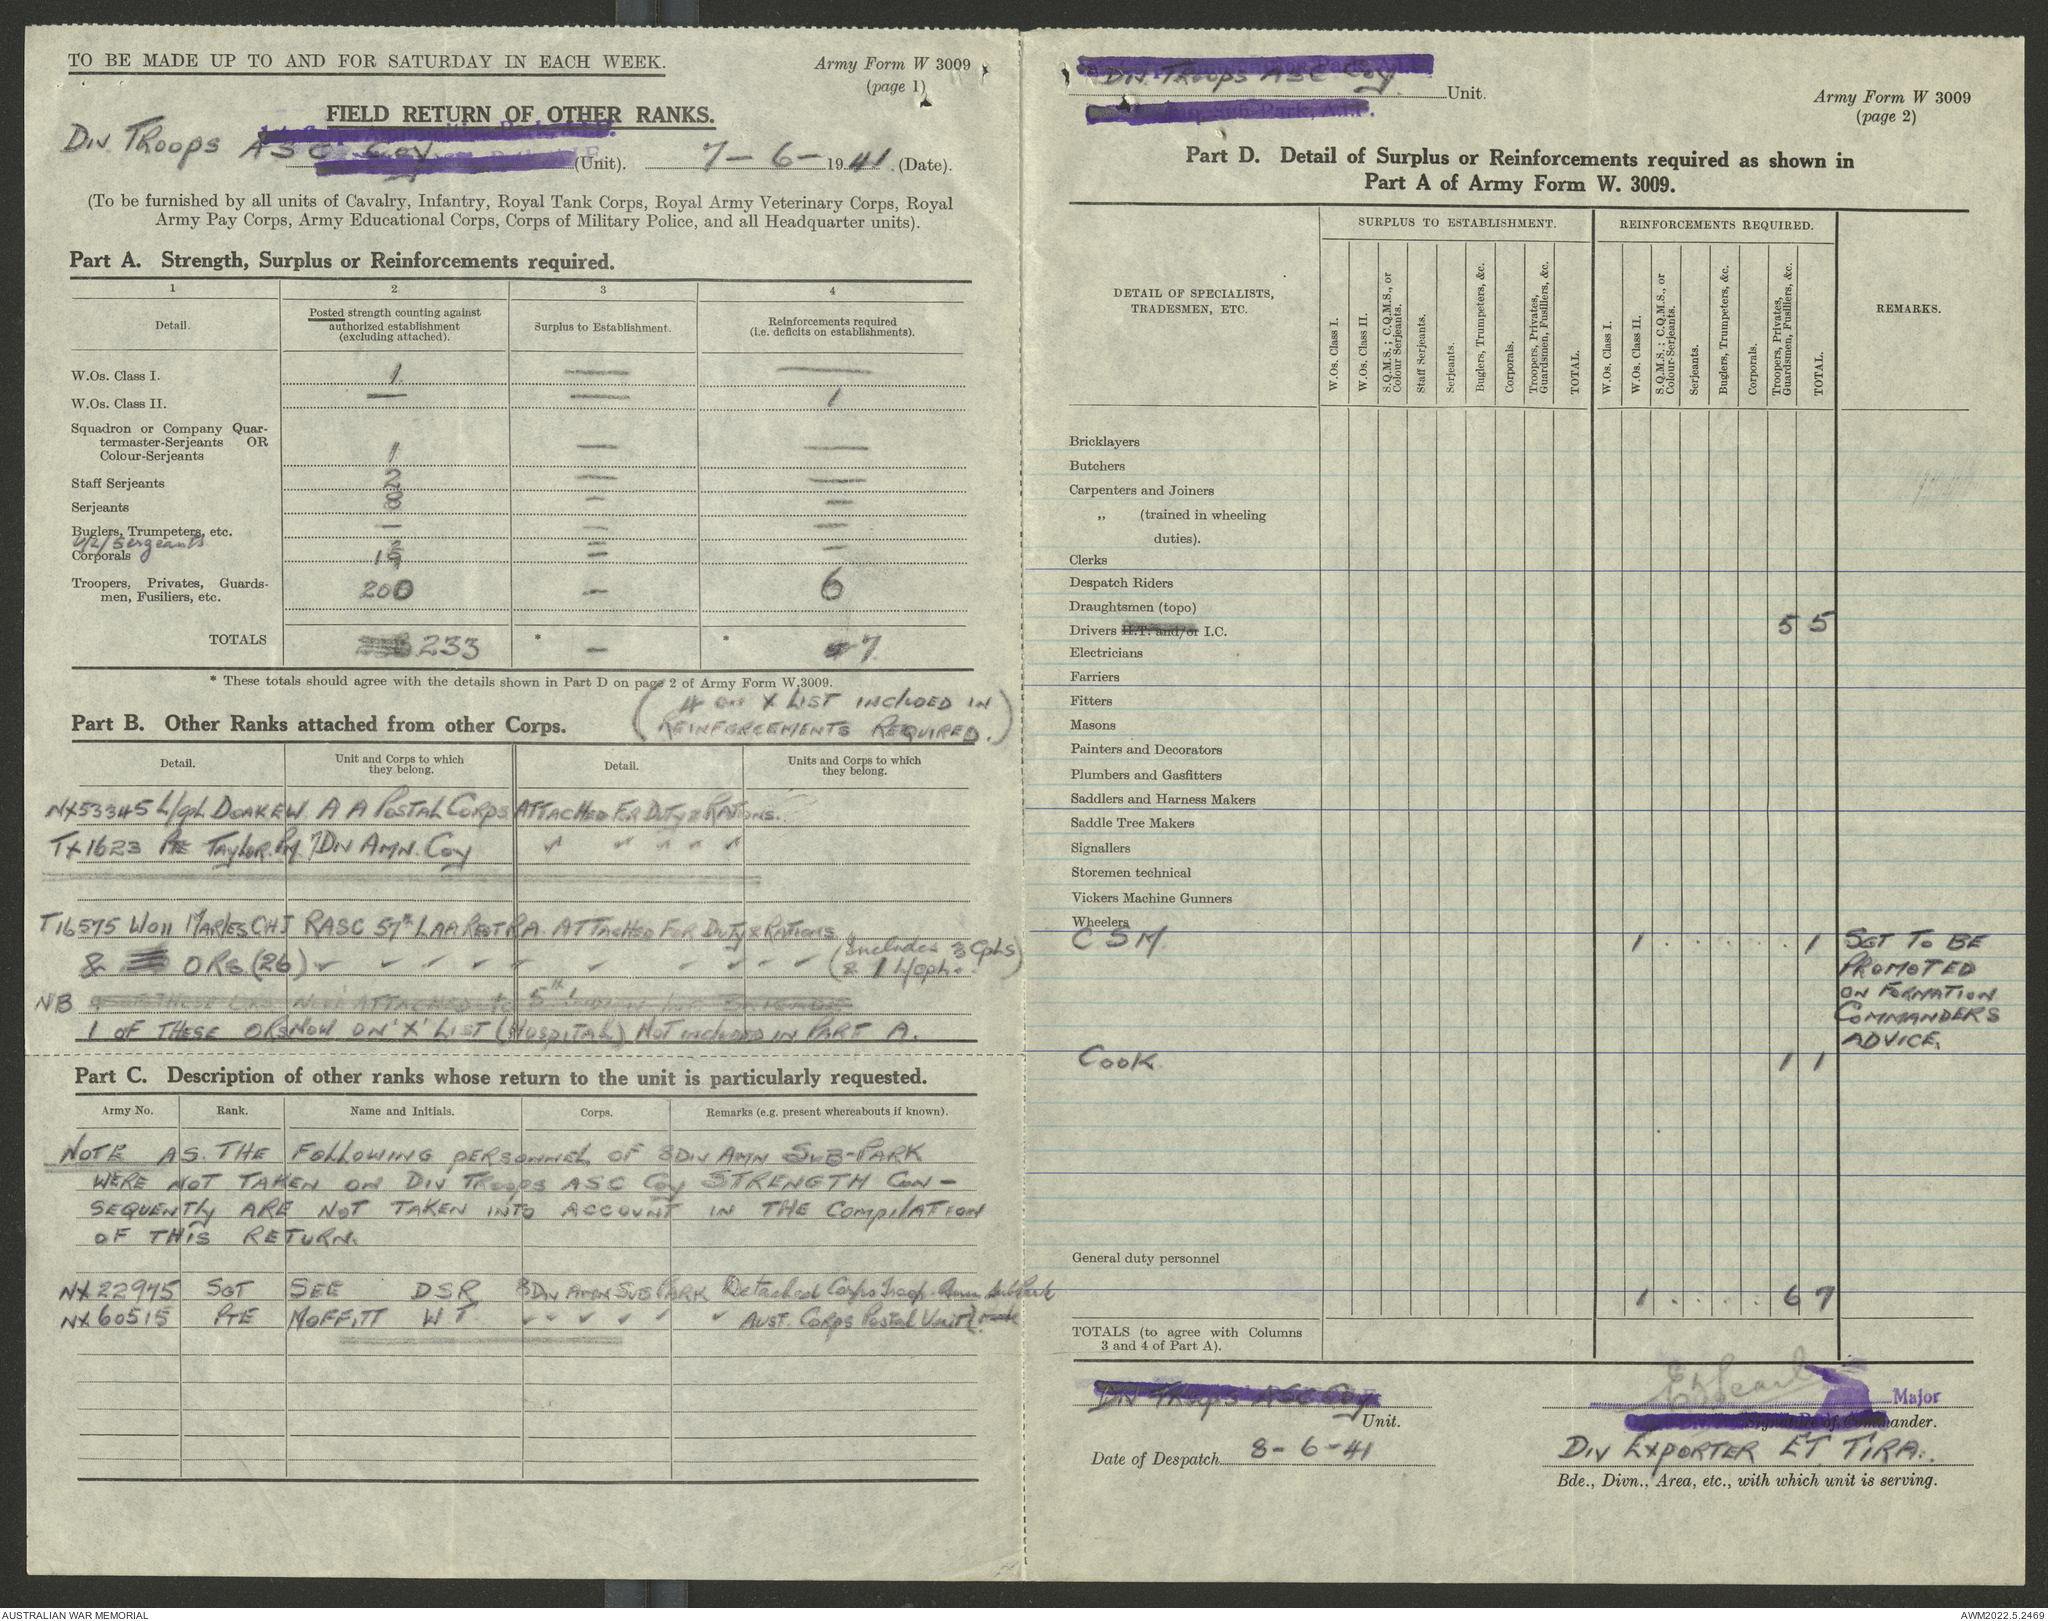 TO BE MADE UP TO AND FOR SATURDAY IN EACH WEEK.
Army Form W 3009
(page 1)
FIELD RETURN OF OTHER RANKS.
Div Troops ASC Coy (Unit). 7-6-1941. (Date).
(To be furnished by all units of Cavalry, Infantry, Royal Tank Corps, Royal Army Veterinary Corps, Royal
Army Pay Corps, Army Educational Corps, Corps of Military Police, and all Headquarter units).
Part A. Strength, Surplus or Reinforcements required.
1 2 3 4
Detail. Posted strength counting against authorized establishment (excluding attached). Surplus to Establishment. Reinforcements required (i.e. deficits on establishments).
W.Os. Class I. 1 — —
W.Os. Class II. — — 1
Squadron or Company Quar-
termaster-Serjeants OR
Colour-Serjeants 1 — —
Staff Serjeants 2 — —
Serjeants 8 — —
Buglers, Trumpeters, etc. — — —
L/Sergeants 2 —
Corporals 19 — —
Troopers, Privates, Guards-
men, Fusiliers, etc. 200 — 6
TOTALS 233 * — * 7
* These totals should agree with the details shown in Part D on page 2 of Army Form W.3009.
(4 on X LIST INCLUDED IN
REINFORCEMENTS REQUIRED.)
Part B. Other Ranks attached from other Corps.
Detail. Unit and Corps to which they belong. Detail. Units and Corps to which they belong.
NX53345 L/Cpl DOAKE W. A A POSTAL CORPS ATTACHED FOR DUTY & RATIONS.
TX1623 Pte TAYLOR. 7 DIV AMN. Coy " " " " "
T16575 WOII MARLES CHJ RASC 57th LAA REGT RA. ATTACHED FOR DUTY & RATIONS
& ORs (26) (Includes 3 Cpls
& 1 L/Cpl.)
NB
1 OF THESE ORS NOW ON 'X' LIST (HOSPITAL) NOT INCLUDED IN PART A.
Part C. Description of other ranks whose return to the unit is particularly requested.
Army No. Rank. Name and Initials. Corps. Remarks (e.g. present whereabouts if known).
NOTE AS THE FOLLOWING PERSONNEL OF 8 DIV AMN SUB-PARK
WERE NOT TAKEN ON DIV TROOPS ASC Coy STRENGTH CON-
SEQUENTLY ARE NOT TAKEN INTO ACCOUNT IN THE COMPILATION
OF THIS RETURN.
NX22975 SGT SEE DSR 8 DIV AMN SUB PARK Detached Corps Troop. Amn Sub Park
NX60515 PTE MOFFITT W T. " " " " " " AUST. CORPS POSTAL UNIT
Div Troops ASC Coy Unit.
Army Form W 3009
(page 2)
Part D. Detail of Surplus or Reinforcements required as shown in
Part A of Army Form W. 3009.
DETAIL OF SPECIALISTS, TRADESMEN, ETC.
SURPLUS TO ESTABLISHMENT.
W.Os. Class I.
W.Os. Class II.
S.Q.M.S.; C.Q.M.S., or Colour Serjeants.
Staff Serjeants.
Serjeants.
Buglers, Trumpeters, &c.
Corporals.
Troopers, Privates, Guardsmen, Fusiliers, &c.
TOTAL.
REINFORCEMENTS REQUIRED.
W.Os. Class I.
W.Os. Class II.
S.Q.M.S.; C.Q.M.S., or Colour-Serjeants.
Serjeants.
Buglers, Trumpeters, &c.
Corporals.
Troopers, Privates, Guardsmen, Fusiliers, &c.
TOTAL.
REMARKS.
Bricklayers
Butchers
Carpenters and Joiners
„ (trained in wheeling
duties).
Clerks
Despatch Riders
Draughtsmen (topo)
Drivers H.T. and/or I.C. 5 5
Electricians
Farriers
Fitters
Masons
Painters and Decorators
Plumbers and Gasfitters
Saddlers and Harness Makers
Saddle Tree Makers
Signallers
Storemen technical
Vickers Machine Gunners
Wheelers
CSM. 1 . . . . . . 1 SGT TO BE
PROMOTED
ON FORMATION
COMMANDERS
ADVICE.
COOK 1 1
General duty personnel
1 . . . . . 6 7
TOTALS (to agree with Columns
3 and 4 of Part A).
Div Troops ASC Coy
Unit.
Date of Despatch 8-6-41
Major
Signature of Commander.
DIV EXPORTER ET TIRA.
Bde., Divn., Area, etc., with which unit is serving.
AUSTRALIAN WAR MEMORIAL
AWM2022.5.2469